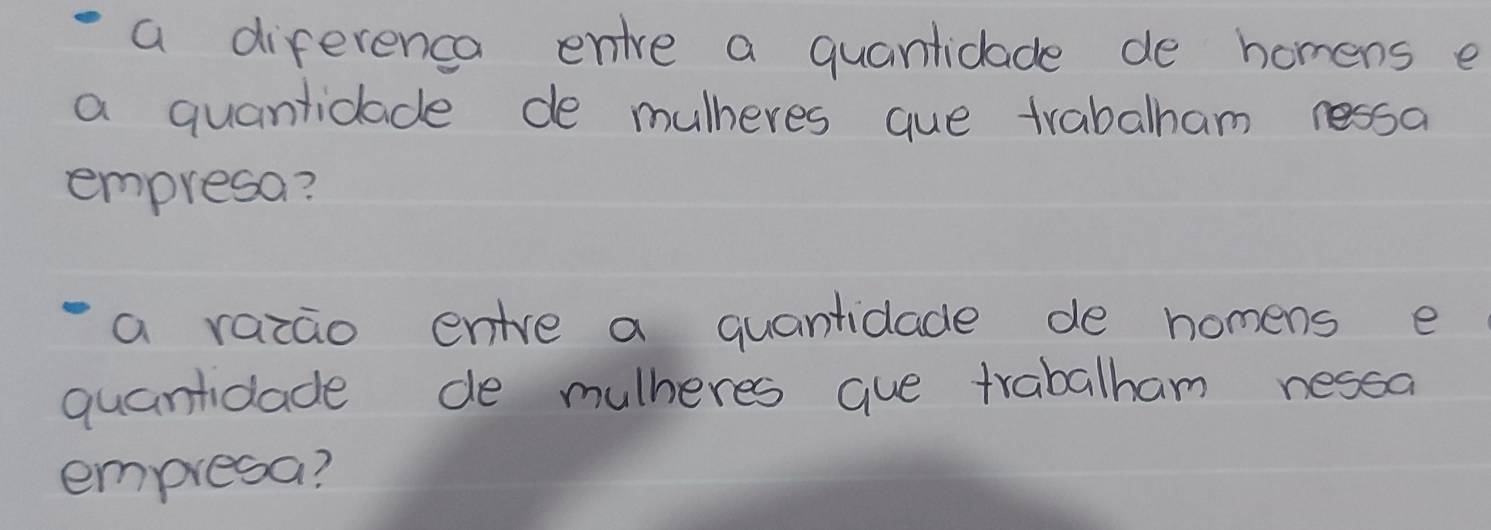 - a diferença entre a quantidade de homens e
a quantidade de mulheres que trabalham nessa
empresa?
- a razão entre a quantidade de homens e
quantidade de mulheres que trabalham nessa
empresa?